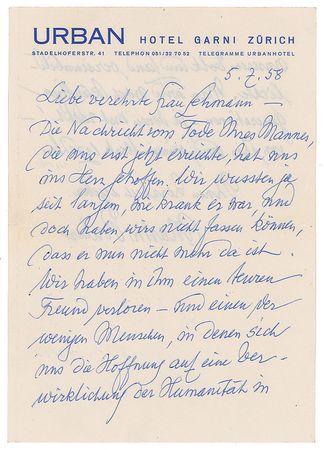 URBAN HOTEL GARNI ZÜRICH
STADELHOFERSTR. 41 TELEPHON 051/32 70 52 TELEGRAMME URBANHOTEL
5. 7. 58
Liebe verehrte Frau Lehmann –
Die Nachricht vom Tode Ihres Mannes,
die uns erst jetzt erreichte, hat uns
ins Herz getroffen. Wir wussten ja
seit langem, wie krank er war und
doch haben wirs nicht fassen können,
dass er nun nicht mehr da ist.
Wir haben in ihm einen teuren
Freund verloren – und einen der
wenigen Menschen, in denen sich
uns die Hoffnung auf eine Ver-
wirklichung der Humanität in